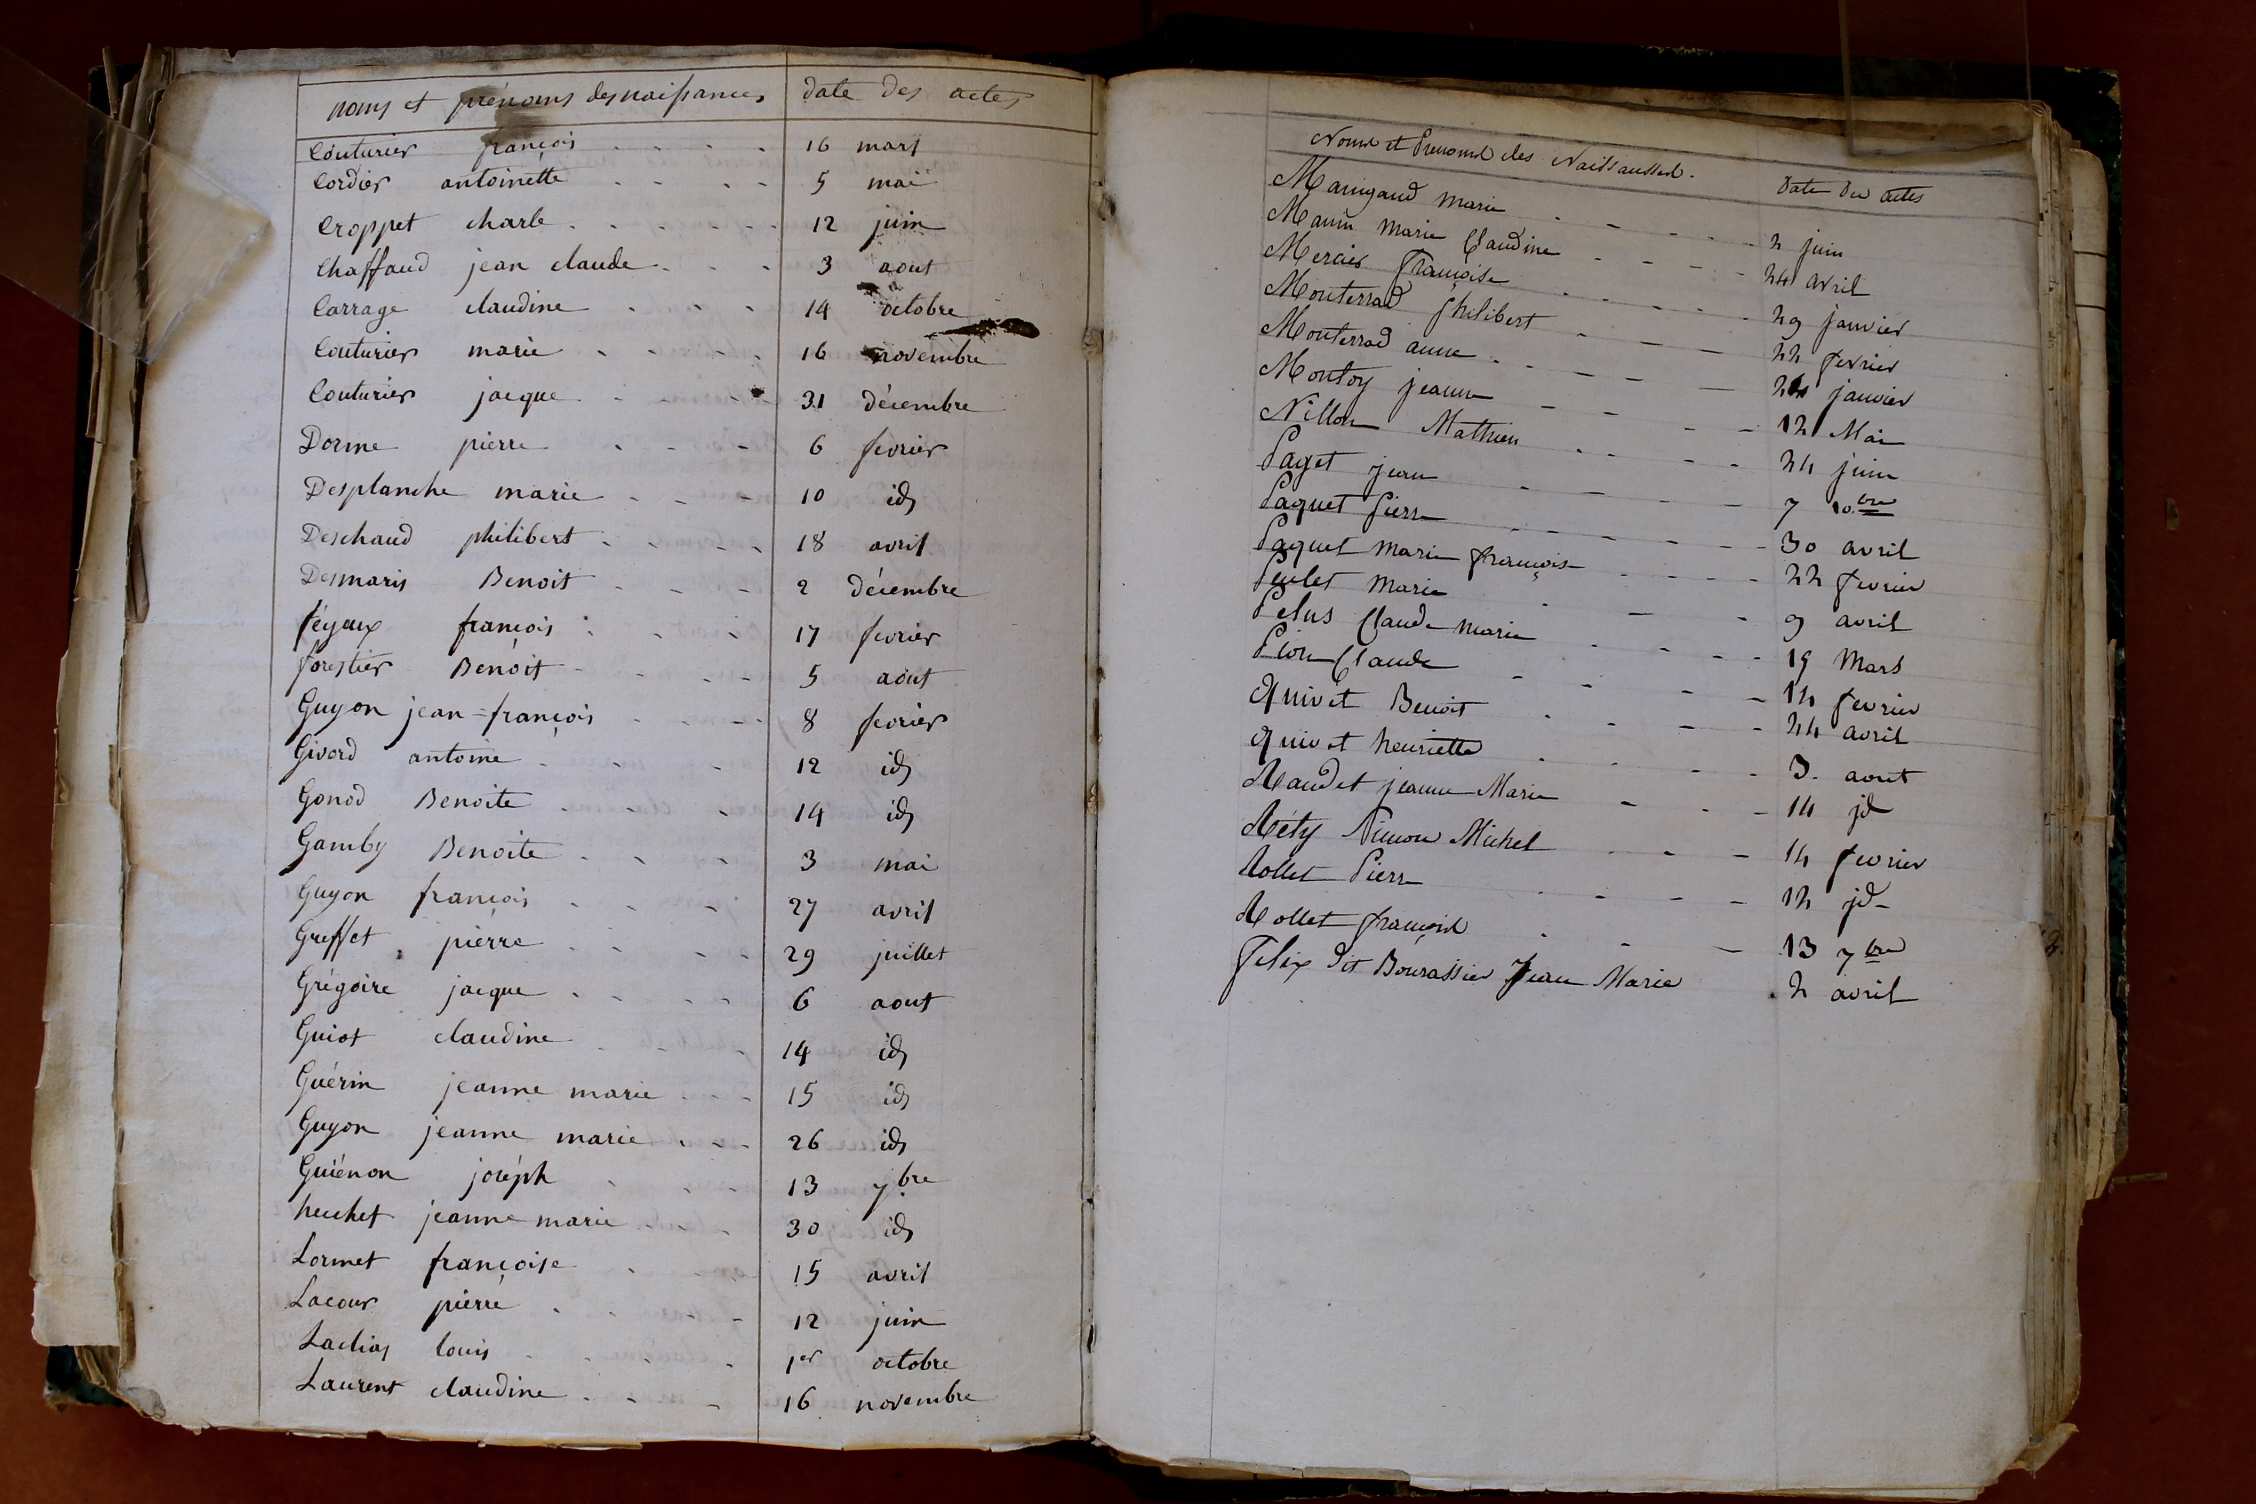 noms et prénoms des naissances date des actes
Couturier françois 16 mars
Cordier antoinette 5 mai
Croppet charle 12 juin
Chaffaud jean claude 3 aout
Carrage claudine 14 octobre
Couturier marie 16 novembre
Couturier jacque 31 décembre
Dorme pierre 6 fevrier
Desplanche marie 10 id
Deschaud philibert 18 avril
Desmaris Benoit 2 décembre
féyeux françois 17 fevrier
forestier Benoit 5 aout
Guyon jean-françois 8 fevrier
Givord antoine 12 id
Gonod Benoite 14 id
Gamby Benoite 3 mai
Guyon françois 27 avril
Greffet pierre 29 juillet
Grégoire jacque 6 aout
Guiot claudine 14 id
Guérin jeanne marie 15 id
Guyon jeanne marie 26 id
Guénon joseph 13 7bre
heuchet jeanne marie 30 id
Lormet françoise 15 avril
Lacour pierre 12 juin
Laclias louis 1er octobre
Laurent claudine 16 novembre
Noms et Prenoms des Naissansses. Date des actes
Marie 2 juin
Marin Marie Claudine 24 avril
Mercier Françoise 29 janvier
Monterrad Philibert 22 fevrier
Monterrad anne 24 janvier
Montoy jeanne 12 Mai
Nillon Mathieu 24 juin
Paget jean 7 10.bre
Paquet Pierre 30 avril
Paquet Marie françoise 22 fevrier
Marie 9 avril
Pelus Claude Marie 19 Mars
Pion Claude 14 fevrier
Quivet Benoit 24 avril
Quivet henriette 3. aout
Raudet jeanne Marie 14 jd
Réty Simon Michel 14 fevrier
Rollet Pierre 12 jd
Rollet françois 13 7bre
Felix dit Bourassier Jean Marie 2 avril